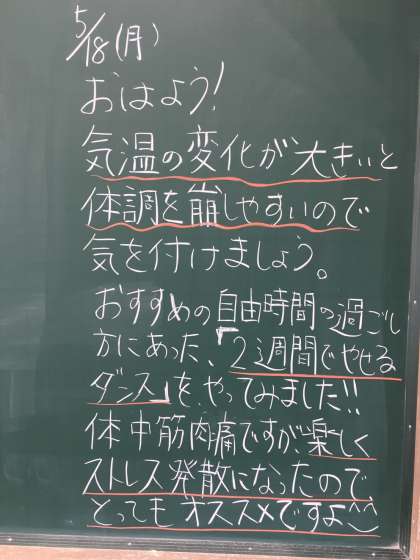 5/18(月)
おはよう!
気温の変化が大きいと
体調を崩しやすいので
気を付けましょう。
おすすめの自由時間の過ごし
方にあった、「2週間でやせる
ダンス」を、やってみました!!
体中筋肉痛ですが、楽しく
ストレス発散になったので、
とってもオススメですよ^^